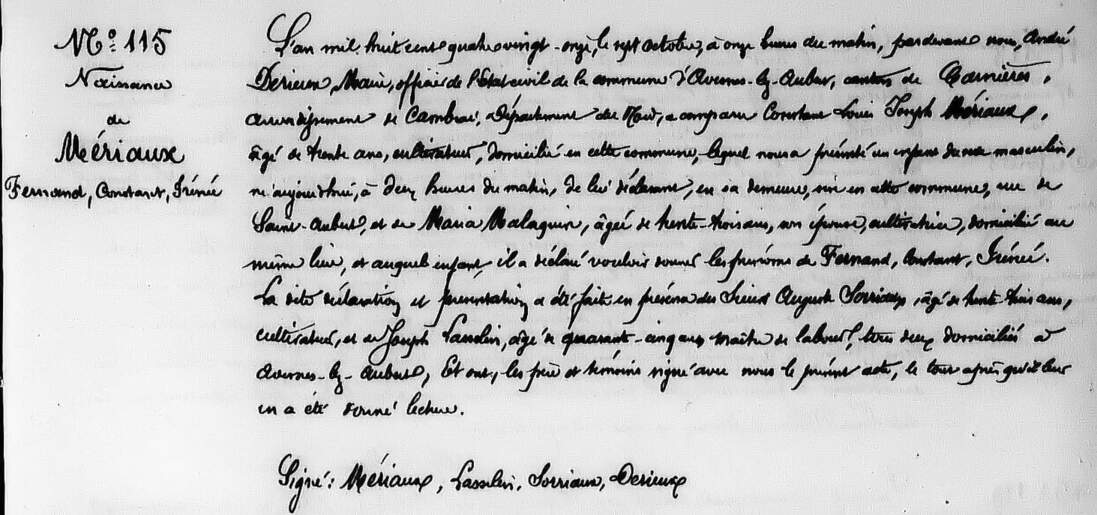 N° 115
Naissance
de
Mériaux
Fernand, Constant, Irénée
L'an mil huit cent quatre vingt-onze, le sept octobre, à onze heures du matin, pardevant nous, André
Derieux, Maire, officier de l'Etat civil de la commune d'Avesnes-lez-Aubert, canton de Carnières,
arrondissement de Cambrai, Département du Nord, a comparu Constant Louis Joseph Mériaux,
âgé de trente ans, cultivateur, domicilié en cette commune, lequel nous a présenté un enfant du sexe masculin,
né aujourd'hui, à deux heures du matin, de lui déclarant, en sa demeure, sise en cette commune, rue de
Saint-Aubert, et de Maria Malaquin, âgée de trente-trois ans, son épouse, cultivatrice, domiciliée au
même lieu, et auquel enfant, il a déclaré vouloir donner les prénoms de Fernand, Constant, Irénée.
La dite déclaration et présentation a été faite en présence des Sieurs Auguste Sorriaux, âgé de trente-trois ans,
cultivateur, et de Joseph Lasselin, âgé de quarante-cinq ans maître de labour, tous deux domiciliés à
Avesnes-lez-Aubert, Et ont, les père et témoins signé avec nous le présent acte, le tout après qu'il leur
en a été donné lecture.
Signé: Mériaux, Lasselin, Sorriaux, Derieux